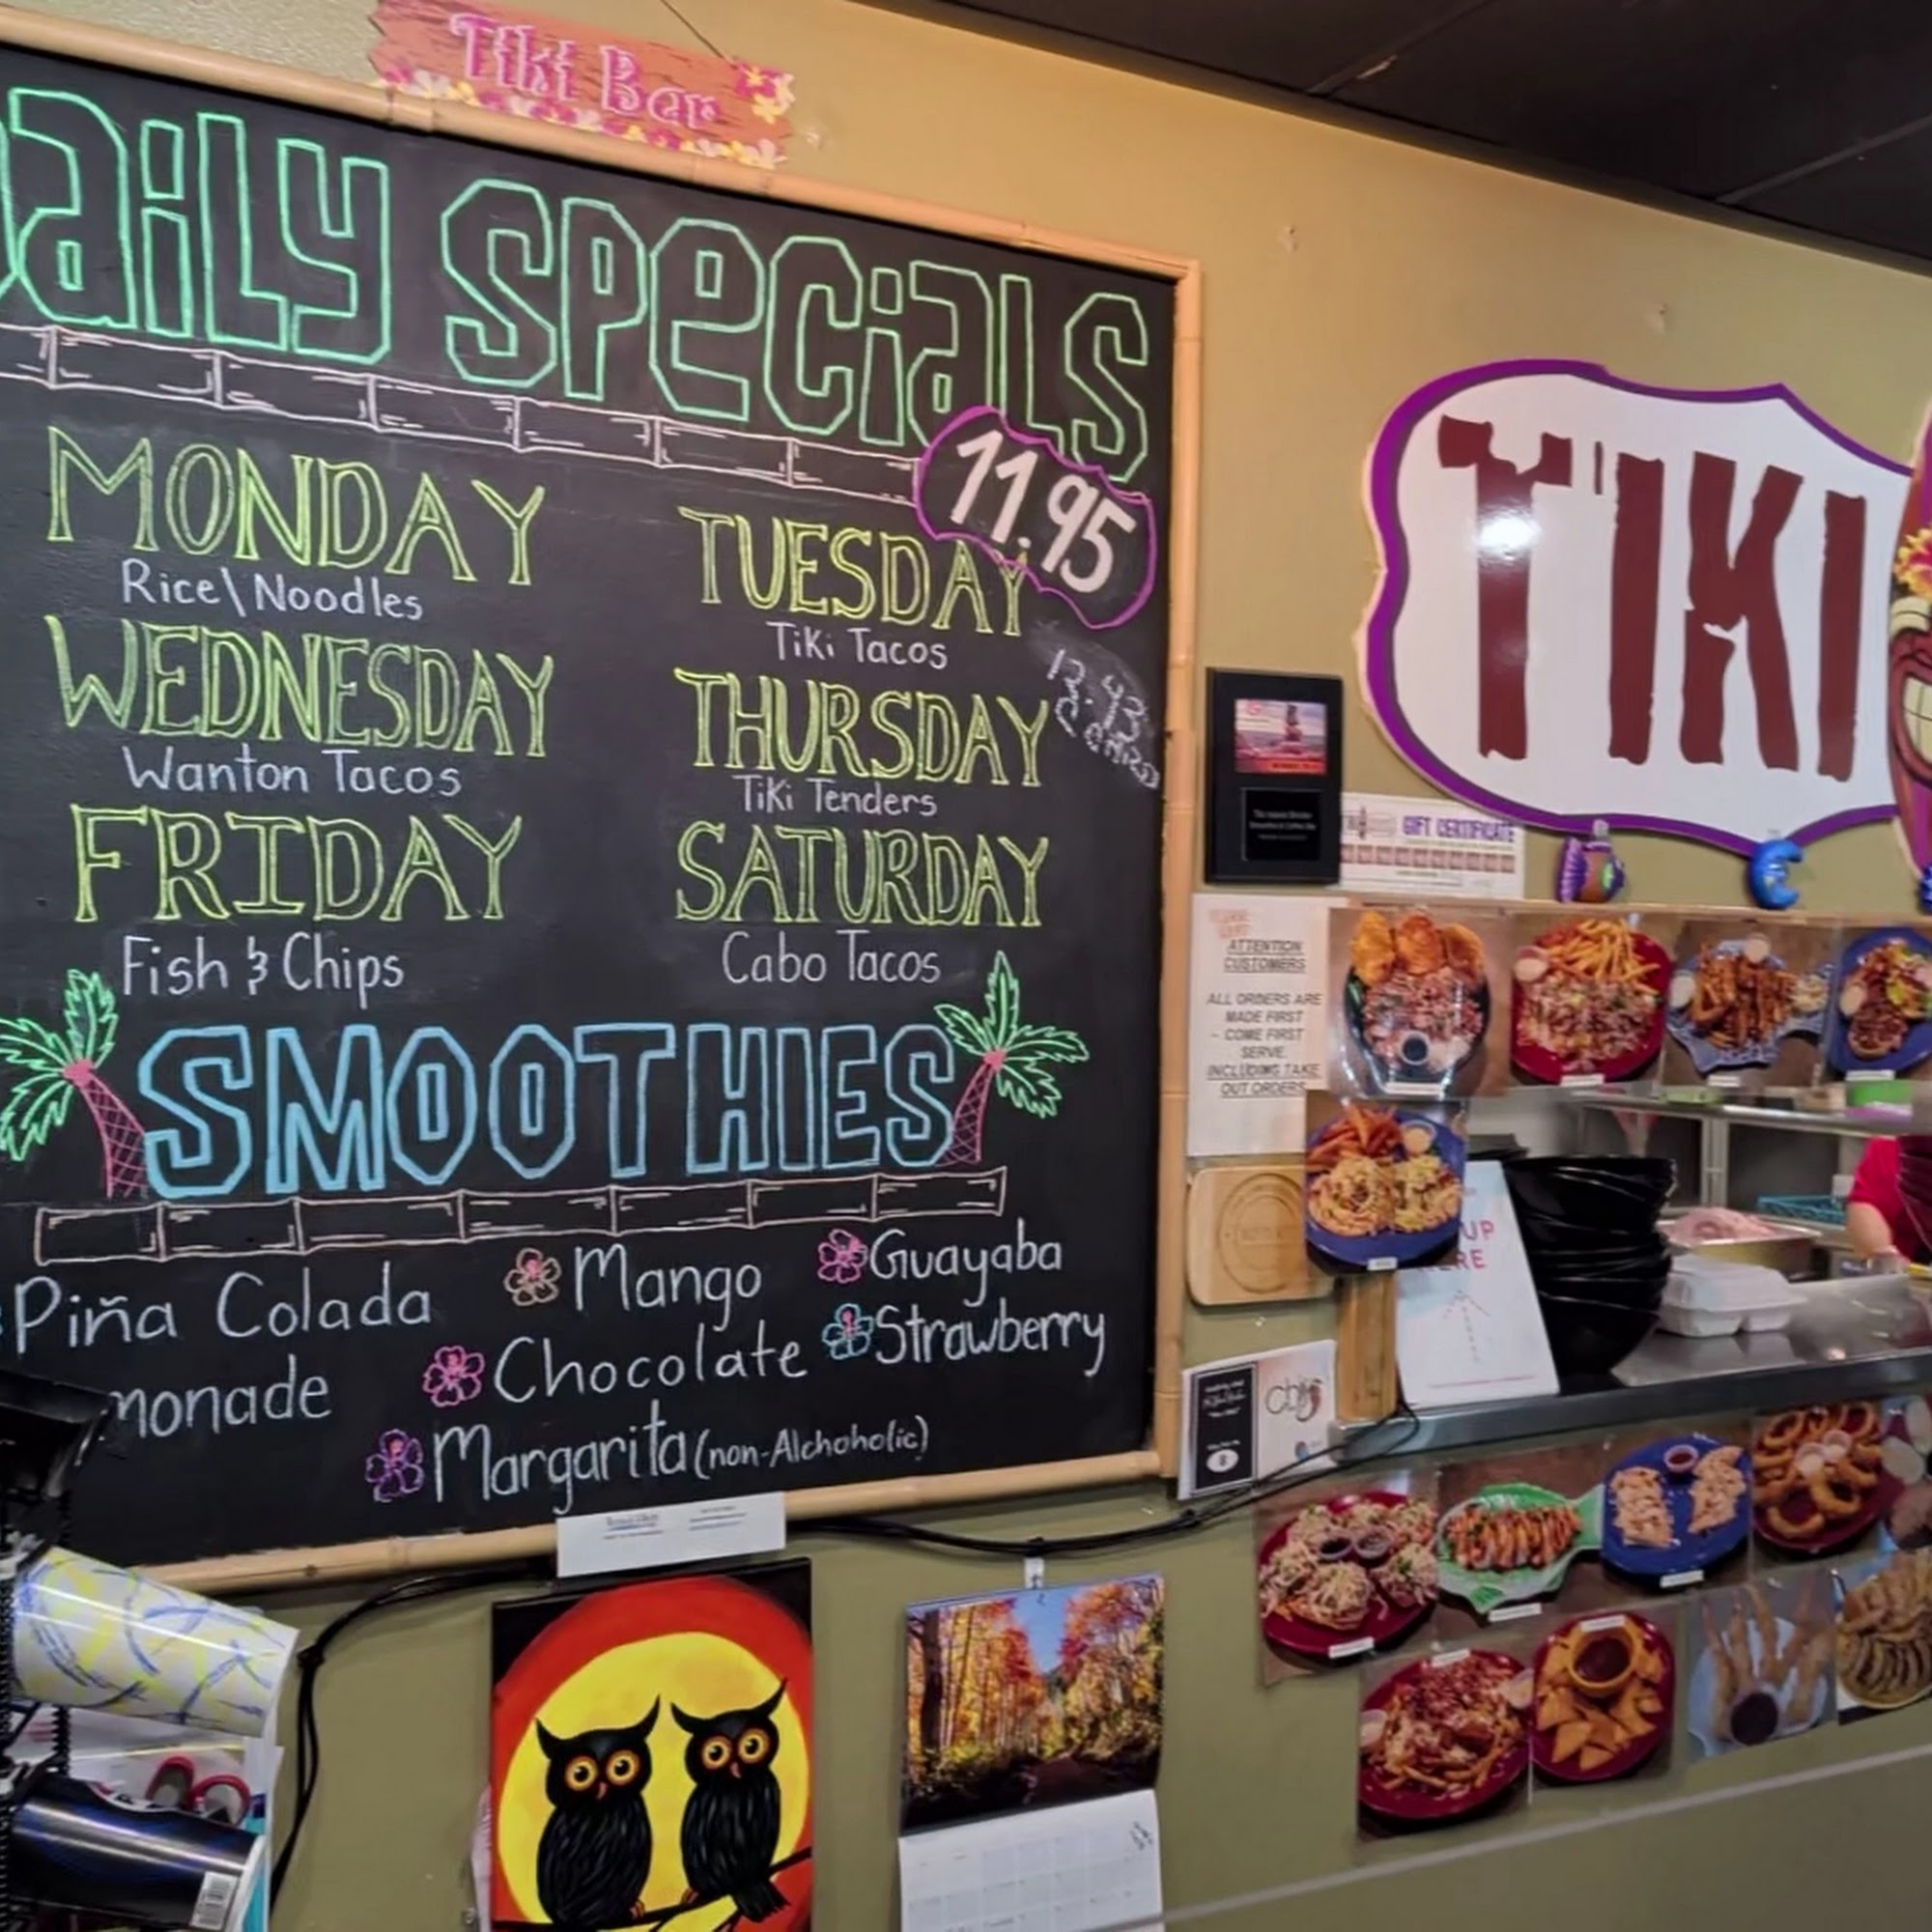 Tiki Bar
Daily Specials
11.95
MONDAY
Rice\Noodles
TUESDAY
Tiki Tacos
WEDNESDAY
Wanton Tacos
THURSDAY
Tiki Tenders
FRIDAY
Fish & Chips
SATURDAY
Cabo Tacos
SMOOTHIES
Piña Colada
Mango
Guayaba
monade
Chocolate
Strawberry
Margarita (non-Alchoholic)
TIKI
GIFT CERTIFICATE
ATTENTION
CUSTOMERS
ALL ORDERS ARE
MADE FIRST
- COME FIRST
SERVE.
INCLUDING TAKE
OUT ORDERS
UP